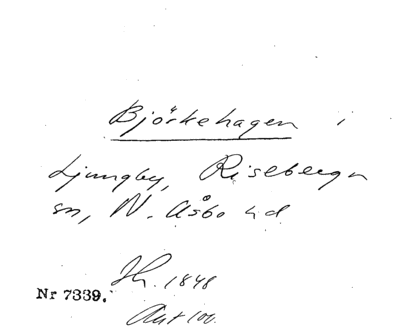 Björkehagen i
Ljungby, Riseberga
sn, N. Åsbo hd
Hr. 1848
Nr 7339.
Ant 100.